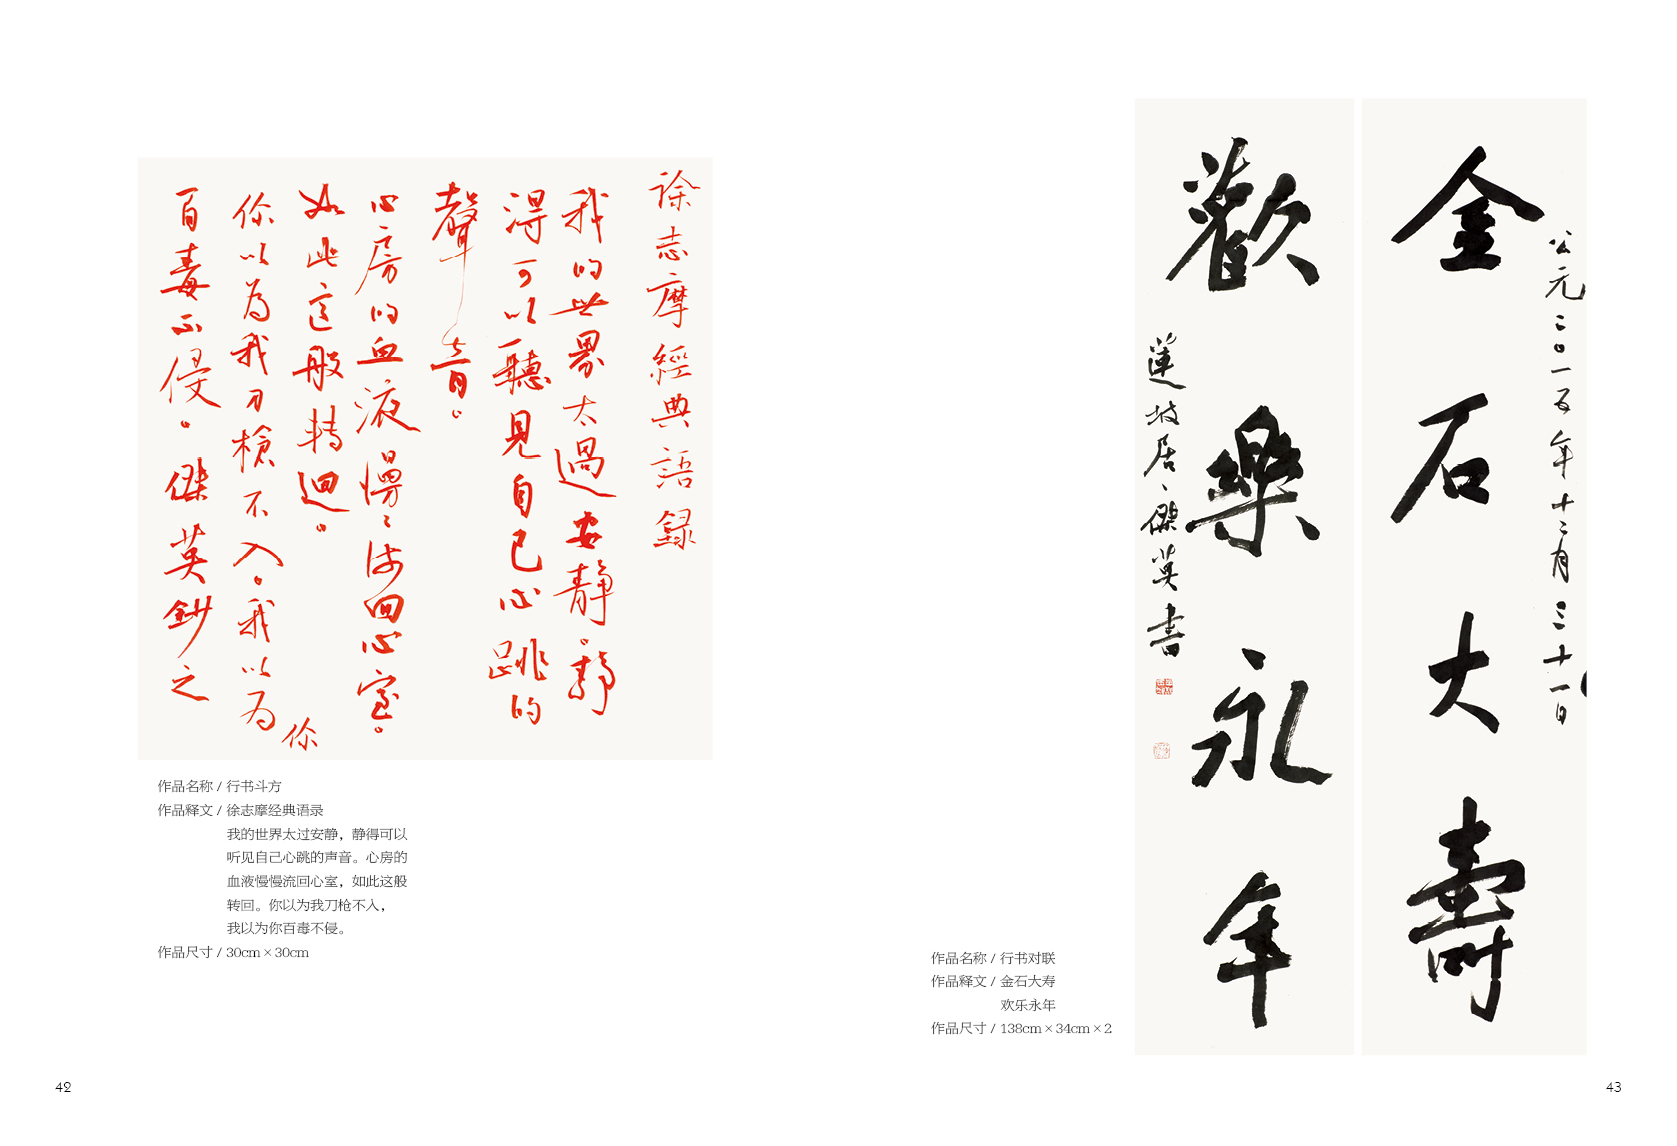 徐志摩經典語録
我的世界太過安静。静
得可以聽見自己心跳的
聲音。
心房的血液慢慢流回心室。
如此这般转迴。
你以為我刀槍不入。我以为
你
百毒不侵。傑英鈔之
作品名称 / 行书斗方
作品释文 / 徐志摩经典语录
我的世界太过安静，静得可以
听见自己心跳的声音。心房的
血液慢慢流回心室，如此这般
转回。你以为我刀枪不入，
我以为你百毒不侵。
作品尺寸 / 30cm × 30cm
42
公元二〇一五年十二月三十一日
金石大壽
歡樂永年
蓮坡居、傑英書
作品名称 / 行书对联
作品释文 / 金石大寿
欢乐永年
作品尺寸 / 138cm × 34cm × 2
43